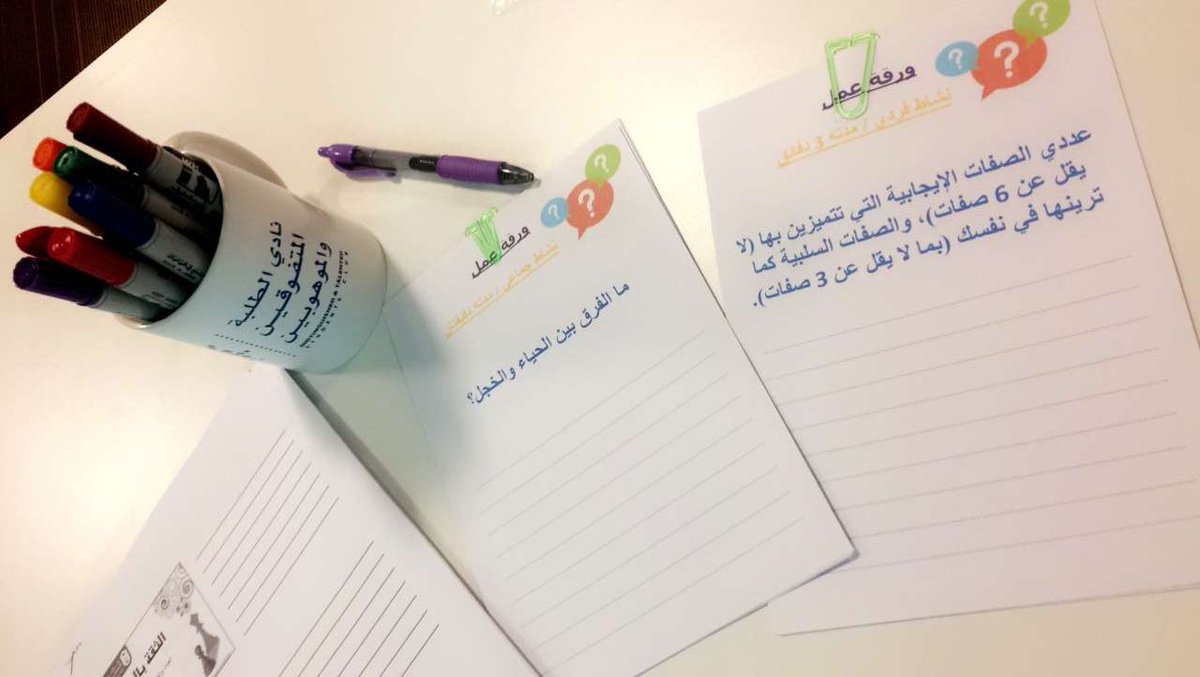 ورقة عمل
نشاط فردي / مدته 3 دقائق
عددي الصفات الإيجابية التي تتميزين بها (لا
يقل عن 6 صفات)، والصفات السلبية كما
ترينها في نفسك (بما لا يقل عن 3 صفات).
ورقة عمل
نشاط جماعي / مدته دقيقتان
ما الفرق بين الحياء والخجل؟
نادي الطلبة
المتفوقين
والموهوبين
DISTINGUISHED & TALENTED
STUDENTS CLUB
الثقة